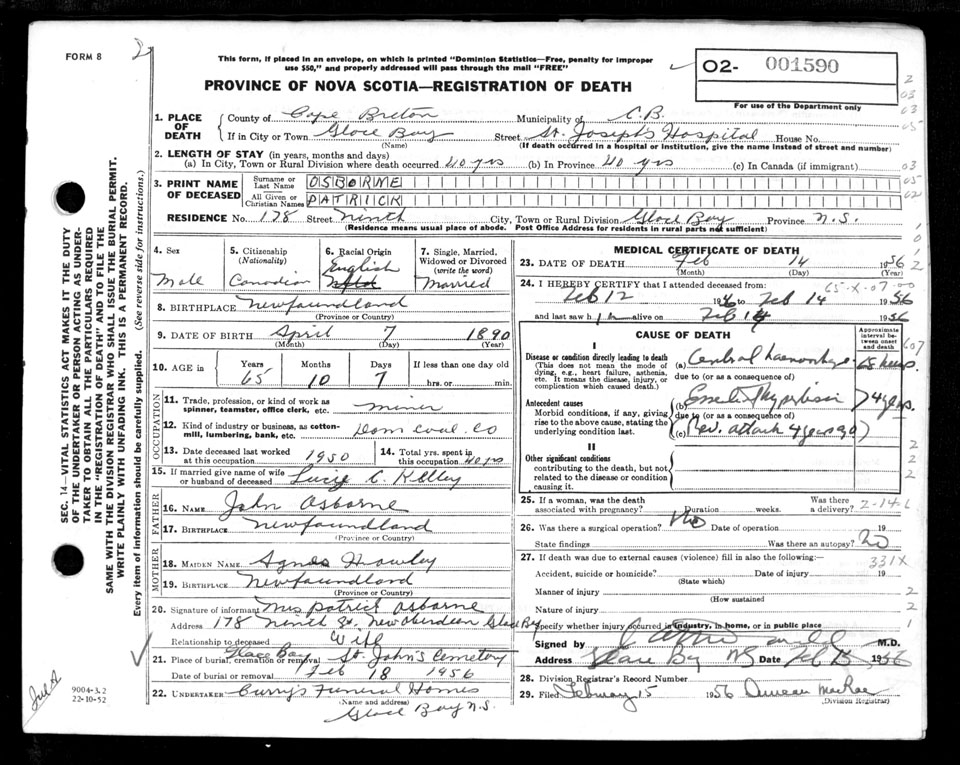 FORM 8
2
This form, if placed in an envelope, on which is printed "Dominion Statistics—Free, penalty for improper
use $50," and properly addressed will pass through the mail "FREE"
PROVINCE OF NOVA SCOTIA—REGISTRATION OF DEATH
O2- 001590
For use of the Department only
1. PLACE OF DEATH
County of Cape Breton Municipality of C.B.
If in City or Town Glace Bay Street St. Joseph's Hospital House No.
(Name) (If death occurred in a hospital or institution, give the name instead of street and number)
2. LENGTH OF STAY (in years, months and days)
(a) In City, Town or Rural Division where death occurred 40 yrs (b) In Province 40 yrs (c) In Canada (if immigrant)
3. PRINT NAME OF DECEASED
Surname or Last Name OSBORNE
All Given or Christian Names PATRICK
RESIDENCE No. 178 Street Ninth City, Town or Rural Division Glace Bay Province N.S.
(Residence means usual place of abode. Post Office Address for residents in rural parts not sufficient)
4. Sex
Male
5. Citizenship (Nationality)
Canadian
6. Racial Origin
English
7. Single, Married, Widowed or Divorced (write the word)
Married
8. BIRTHPLACE Newfoundland
(Province or Country)
9. DATE OF BIRTH April 7 1890
(Month) (Day) (Year)
10. AGE in Years Months Days If less than one day old
65 10 7 hrs. or min.
OCCUPATION
11. Trade, profession, or kind of work as spinner, teamster, office clerk, etc. miner
12. Kind of industry or business, as cotton-mill, lumbering, bank, etc. Dom Coal Co
13. Date deceased last worked at this occupation 1950
14. Total yrs. spent in this occupation 40 yrs
15. If married give name of wife or husband of deceased C. Kelley
FATHER
16. NAME John Osborne
17. BIRTHPLACE Newfoundland
(Province or Country)
MOTHER
18. MAIDEN NAME Agnes
19. BIRTHPLACE Newfoundland
(Province or Country)
20. Signature of informant Mrs Patrick Osborne
Address 178 Ninth St. New Aberdeen Glace Bay
Relationship to deceased Wife
21. Place of burial, cremation or removal Glace Bay St. John's Cemetery
Date of burial or removal Feb 18 1956
22. UNDERTAKER Curry's Funeral Homes
(Name and address)
Glace Bay N.S.
MEDICAL CERTIFICATE OF DEATH
23. DATE OF DEATH Feb 14 1956
(Month) (Day) (Year)
24. I HEREBY CERTIFY that I attended deceased from:
65-X-07-00
Feb 12 to Feb 14 1956
and last saw h alive on Feb 14 1956
CAUSE OF DEATH
Approximate interval between onset and death
I
Disease or condition directly leading to death
(This does not mean the mode of dying, e.g., heart failure, asthenia, etc. It means the disease, injury, or complication which caused death.)
(a)
due to (or as a consequence of)
Antecedent causes
Morbid conditions, if any, giving rise to the above cause, stating the underlying condition last.
(b)
due to (or as a consequence of)
(c) attack 4 years ago
II
Other significant conditions
contributing to the death, but not related to the disease or condition causing it.
25. If a woman, was the death associated with pregnancy? Duration weeks. Was there a delivery?
26. Was there a surgical operation? No Date of operation 19
State findings Was there an autopsy? No
27. If death was due to external causes (violence) fill in also the following:—
331X
Accident, suicide or homicide? Date of injury 19
(State which)
Manner of injury
(How sustained)
Nature of injury
Specify whether injury occurred in industry, in home, or in public place
Signed by M.D.
Address Glace Bay NS Date Feb 15 1956
28. Division Registrar's Record Number
29. Filed February 15 1956 Duncan MacRae
(Division Registrar)
SEC. 14—VITAL STATISTICS ACT MAKES IT THE DUTY
OF THE UNDERTAKER OR PERSON ACTING AS UNDER-
TAKER TO OBTAIN ALL THE PARTICULARS REQUIRED
IN THE "REGISTRATION OF DEATH" AND TO FILE THE
SAME WITH THE DIVISION REGISTRAR WHO SHALL ISSUE THE BURIAL PERMIT.
WRITE PLAINLY WITH UNFADING INK. THIS IS A PERMANENT RECORD.
Every item of information should be carefully supplied. (See reverse side for instructions.)
9004-3.2
22-10-52